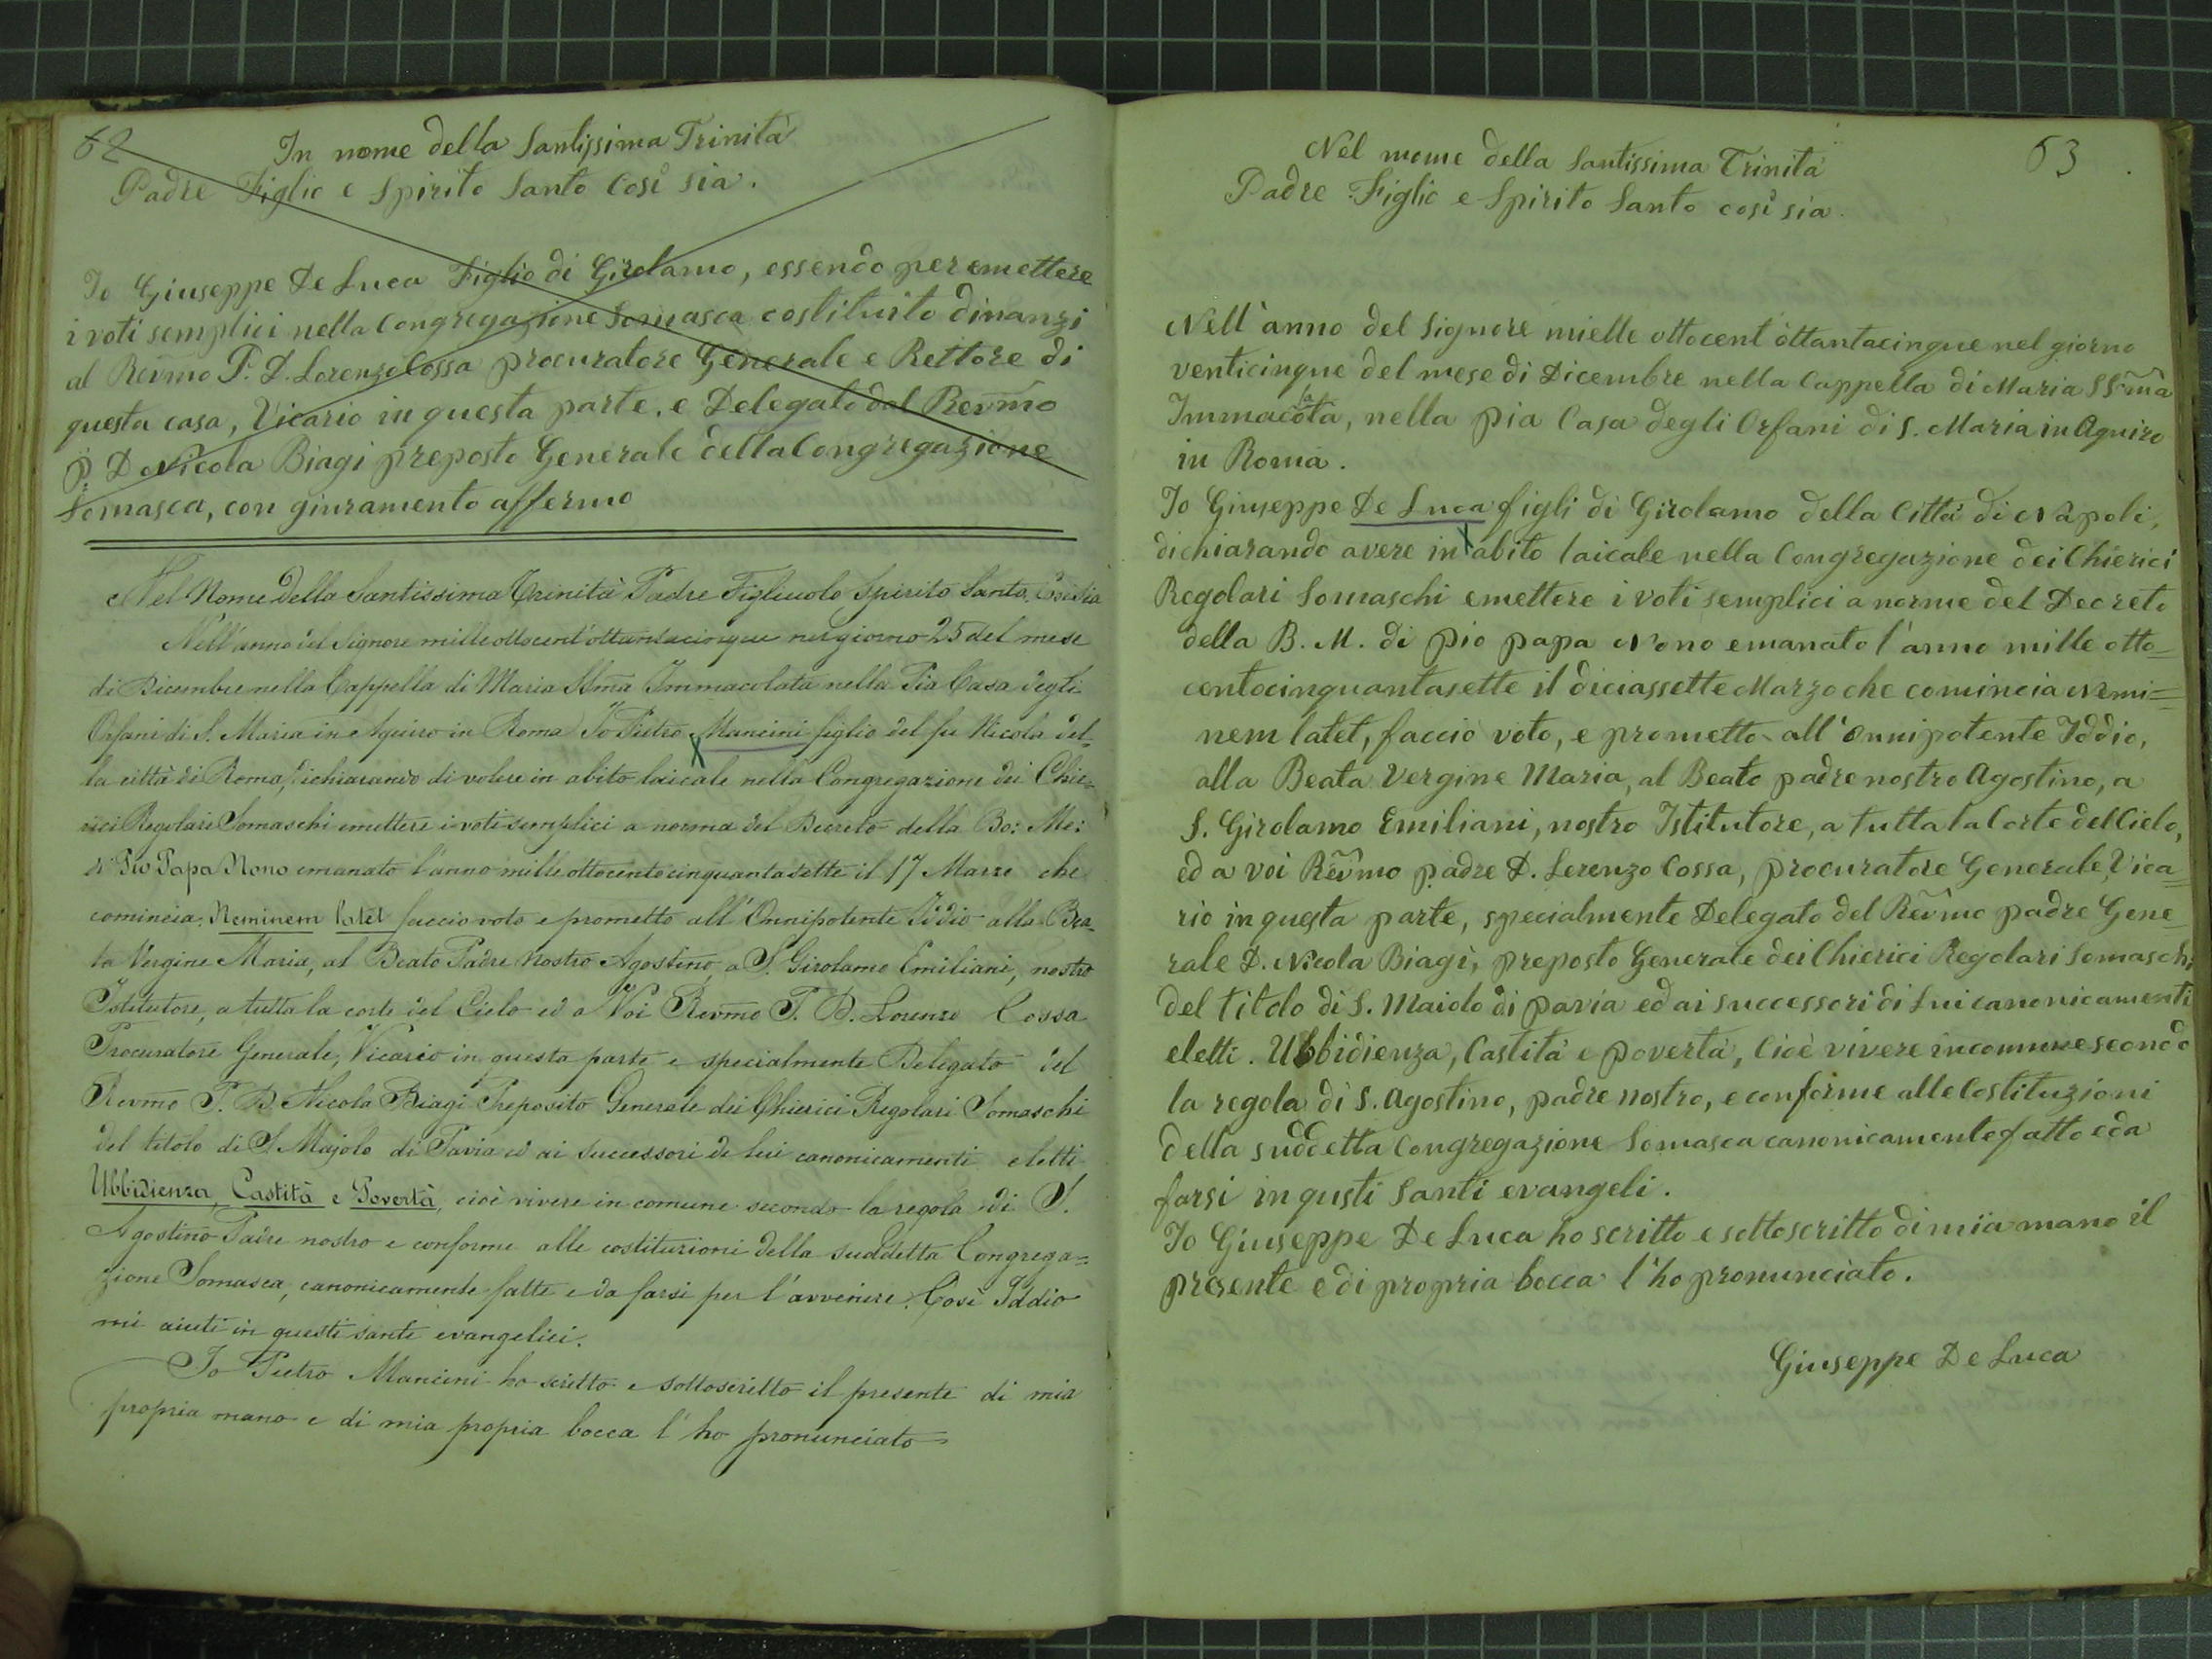 62
In nome della Santissima Trinità
Padre Figlio e Spirito Santo Così sia.
Io Giuseppe De Luca Figlio di Girolamo, essendo per emettere
i voti semplici nella Congregazione Somasca costituito dinanzi
al Reṽmo P. D. Lorenzo Cossa procuratore Generale e Rettore di
questa casa, Vicario in questa parte, e Delegato dal Reṽmo
P. D Nicola Biagi preposto Generale della Congregazione
Somasca, con giuramento affermo
Nel Nome della Santissima Trinità Padre Figliuolo Spirito Santo. Così sia
Nell'anno del Signore mille ottocent'ottantacinque nel giorno 25 del mese
di Dicembre nella Cappella di Maria SSma Immacolata nella Pia Casa degli
Orfani di S. Maria in Aquiro in Roma Io Pietro Mancini figlio del fu Nicola del-
la città di Roma, dichiarando di volere in abito laicale nella Congregazione dei Chie-
rici Regolari Somaschi emettere i voti semplici a norma del Decreto della Bo: Me:
di Pio Papa Nono emanato l'anno mille ottocentocinquantasette il 17 Marzo che
comincia. Neminem latet faccio voto e prometto all'Onnipotente Iddio alla Bea-
ta Vergine Maria, al Beato Padre Nostro Agostino, a S. Girolamo Emiliani, nostro
Istitutore, a tutta la corte del Cielo ed a Voi Revmo P. D. Lorenzo Cossa
Procuratore Generale, Vicario in questa parte e specialmente Delegato del
Revmo P. D. Nicola Biagi Preposito Generale dei Chierici Regolari Somaschi
del titolo di S. Majolo di Pavia ed ai successori di lui canonicamenti eletti
Ubbidienza, Castità e Povertà, cioè vivere in comune secondo la regola di S.
Agostino Padre nostro e conforme alle costituzioni della suddetta Congrega=
zione Somasca, canonicamente fatte e da farsi per l'avvenire. Così Iddio
mi aiuti in questi santi evangelici.
Io Pietro Mancini ho scritto e sottoscritto il presente di mia
propria mano e di mia propria bocca l'ho pronunciato
63
Nel nome della Santissima Trinità
Padre Figlio e Spirito Santo così sia.
Nell'anno del Signore mielle ottocent'ottantacinque nel giorno
venticinque del mese di Dicembre nella Cappella di Maria SSm̃a
Immacolata, nella pia Casa degli Orfani di S. Maria in Aquiro
in Roma.
Io Giuseppe De Luca figli di Girolamo della Città di Napoli,
dichiarando avere in abito laicale nella Congregazione dei Chierici
Regolari Somaschi emettere i voti semplici a norme del Decreto
della B. M. di pio papa Nono emanato l'anno mille otto=
centocinquantasette il diciassette Marzo che comincia Nemi=
nem latet, faccio voto, e prometto all'Onnipotente Iddio,
alla Beata Vergine Maria, al Beato padre nostro Agostino, a
S. Girolamo Emiliani, nostro Istitutore, a tutta la Corte del Cielo,
ed a voi Reṽmo padre D. Lorenzo Cossa, procuratore Generale, Vica=
rio in questa parte, specialmente Delegato del Reṽmo padre Gene=
rale D. Nicola Biagi, preposto Generale dei Chierici Regolari Somaschi
del titolo di S. Maiolo di pavia ed ai successori di Lui canonicamenti
eletti. Ubbidienza, Castità e povertà, Cioè vivere in comune secondo
la regola di S. Agostino, padre nostro, e conforme alle Costituzioni
della suddetta Congregazione Somasca canonicamente fatto e da
farsi in qusti Santi evangeli.
Io Giuseppe De Luca ho scritto e sottoscritto di mia mano il
presente e di propria bocca l'ho pronunciato.
Giuseppe De Luca